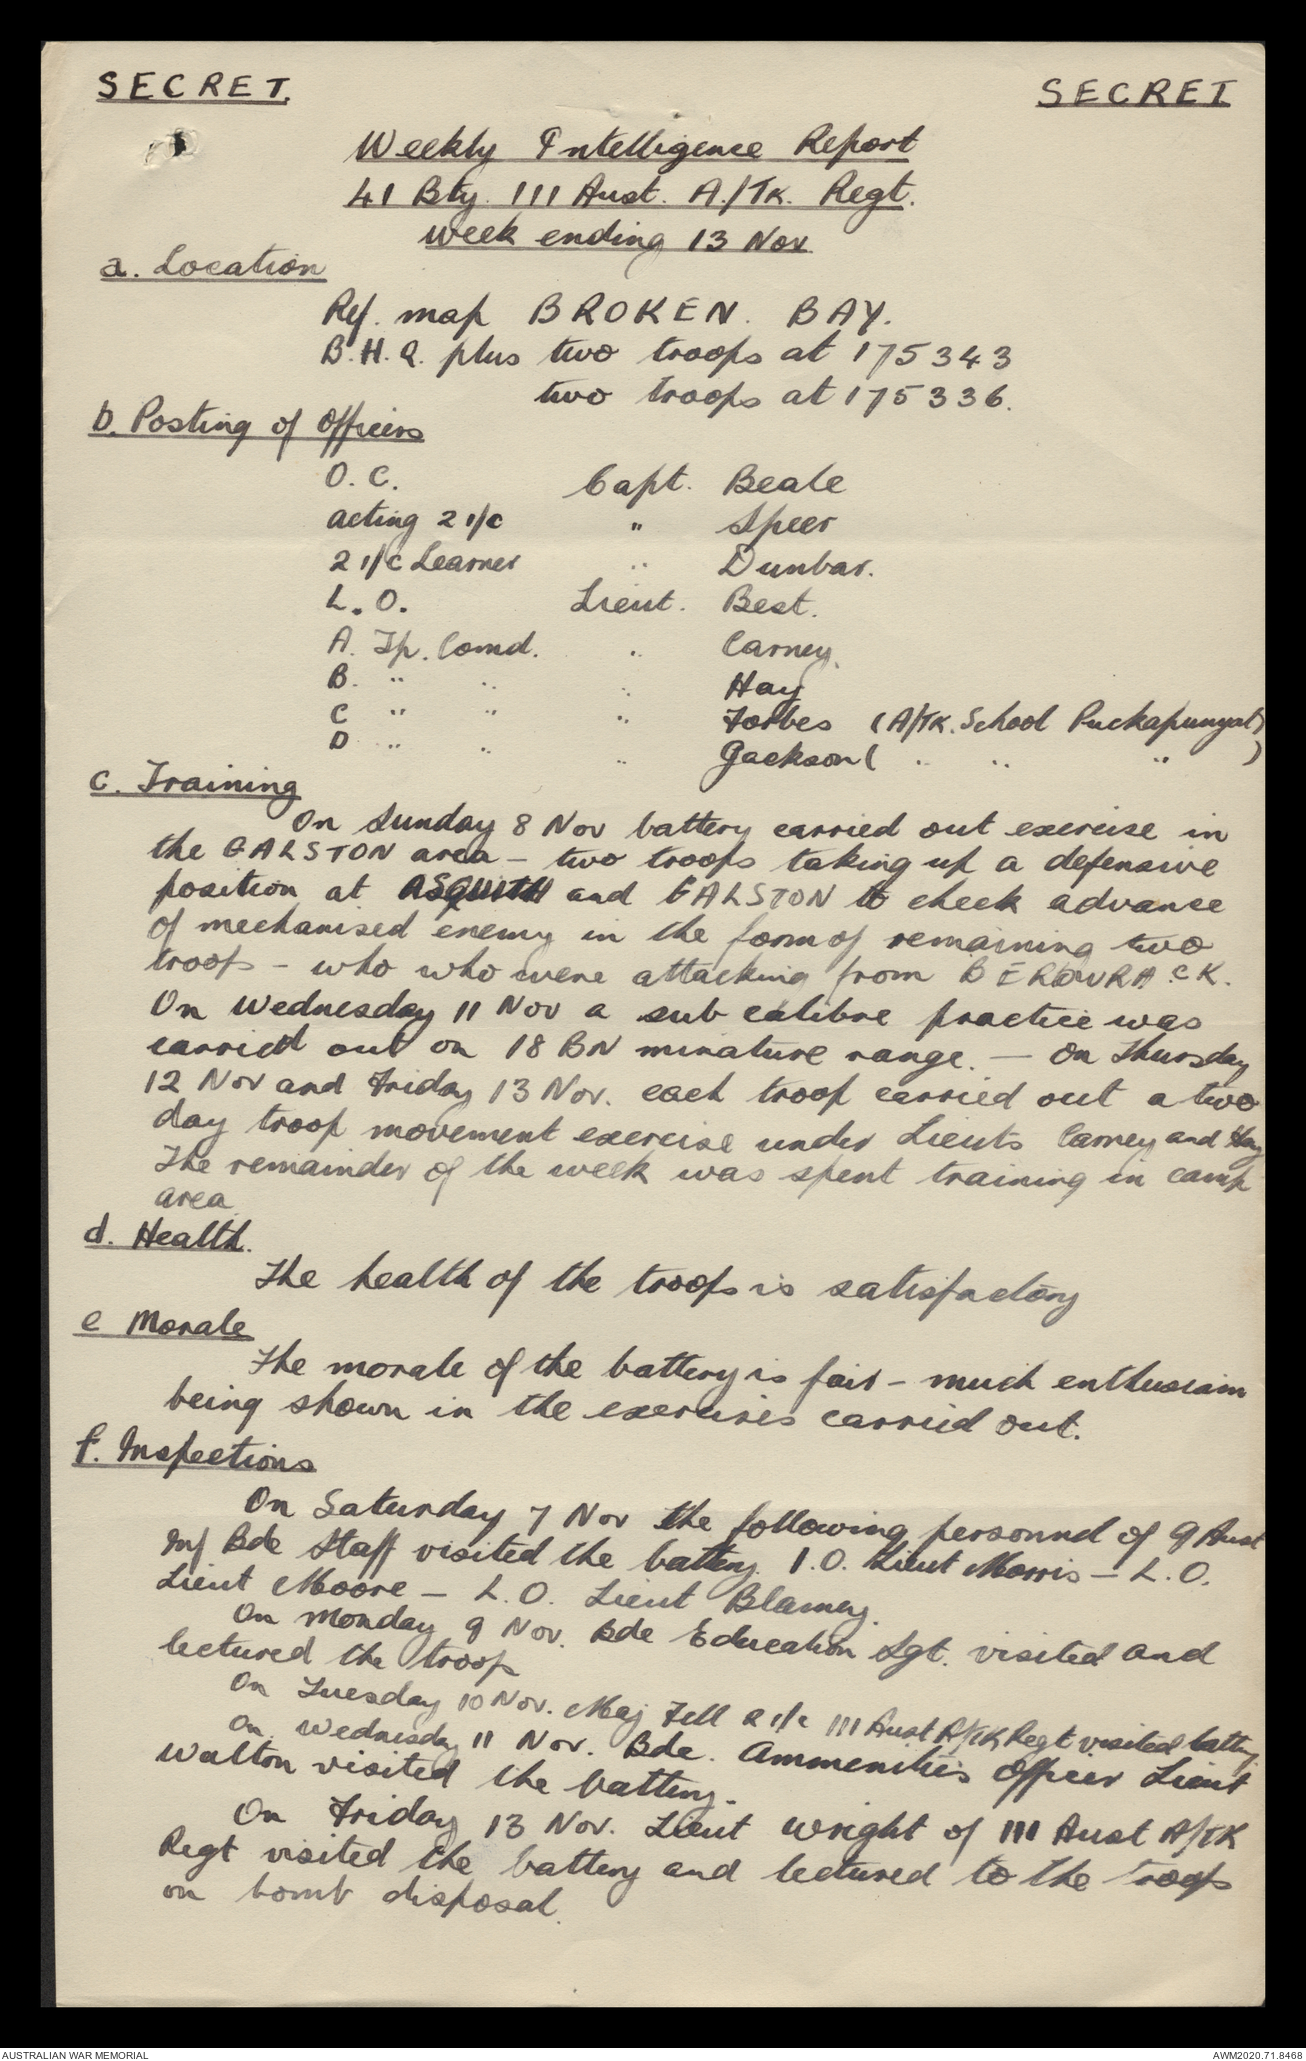 SECRET. SECRET
Weekly Intelligence Report
41 Bty. 111 Aust. A/Tk. Regt.
week ending 13 Nov.
a. Location
Ref. map BROKEN. BAY.
B.H.Q. plus two troops at 175343
two troops at 175336.
b. Posting of Officers
O.C. Capt. Beale
acting 2 i/c " Speer
2 i/c Learner " Dunbar.
L.O. Lieut. Best.
A. Tp. Comd. " Carney.
B. " " " Hay
C " " " Forbes (A/TK. School Puckapunyal)
D " " " Jackson ( " " " )
c. Training
On Sunday 8 Nov battery carried out exercise in
the GALSTON area - two troops taking up a defensive
position at ASQUITH and GALSTON to check advance
of mechanised enemy in the form of remaining two
troops - who who were attacking from BEROWRA CK.
On Wednesday 11 Nov a sub calibre practice was
carried out on 18 BN minature range. - On Thursday
12 Nov and Friday 13 Nov. each troop carried out a two
day troop movement exercise under Lieuts Carney and Hay
The remainder of the week was spent training in camp
area
d. Health.
The health of the troops is satisfactory
e Morale
The morale of the battery is fair - much enthusiasm
being shown in the exercises carried out.
f. Inspections
On Saturday 7 Nov the following personnel of 9 Aust
Inf Bde Staff visited the battery. I.O. Lieut Morris - L.O.
Lieut Moore - L.O. Lieut Blamey.
On Monday 9 Nov. Bde Education Sgt. visited and
lectured the troop
On Tuesday 10 Nov. Maj Fell 2 i/c 111 Aust A/TK Regt visited battery
On Wednesday 11 Nov. Bde. Ammenities Officer Lieut
Walton visited the battery.
On Friday 13 Nov. Lieut Wright of 111 Aust A/TK
Regt visited the battery and lectured to the troops
on bomb disposal.
AUSTRALIAN WAR MEMORIAL AWM2020.71.8468